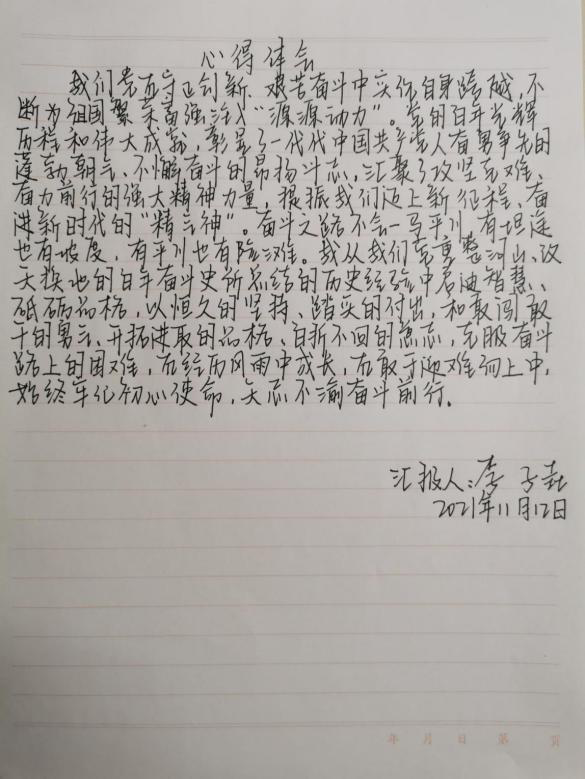 心得体会
我们党在守正创新、艰苦奋斗中实现自身跨越,不
断为祖国繁荣富强注入“源源动力”。党的百年光辉
历程和伟大成就,彰显了一代代中国共产党人奋勇争先的
蓬勃朝气、不懈奋斗的昂扬斗志,汇聚了攻坚克难、
奋力前行的强大精神力量,提振我们迈上新征程、奋
进新时代的“精气神”。奋斗之路不会一马平川,有坦途
也有坡度,有平川也有险滩。我从我们党重整河山、改
天换地的百年奋斗史所总结的历史经验中启迪智慧、
砥砺品格,以恒久的坚持、踏实的付出,和敢闯敢
干的勇气、开拓进取的品格、百折不回的意志,克服奋斗
路上的困难,在经历风雨中成长,在敢于迎难而上中,
始终牢记初心使命,矢志不渝奋斗前行。
汇报人:李子
2021年11月12日
年 月 日 第 页